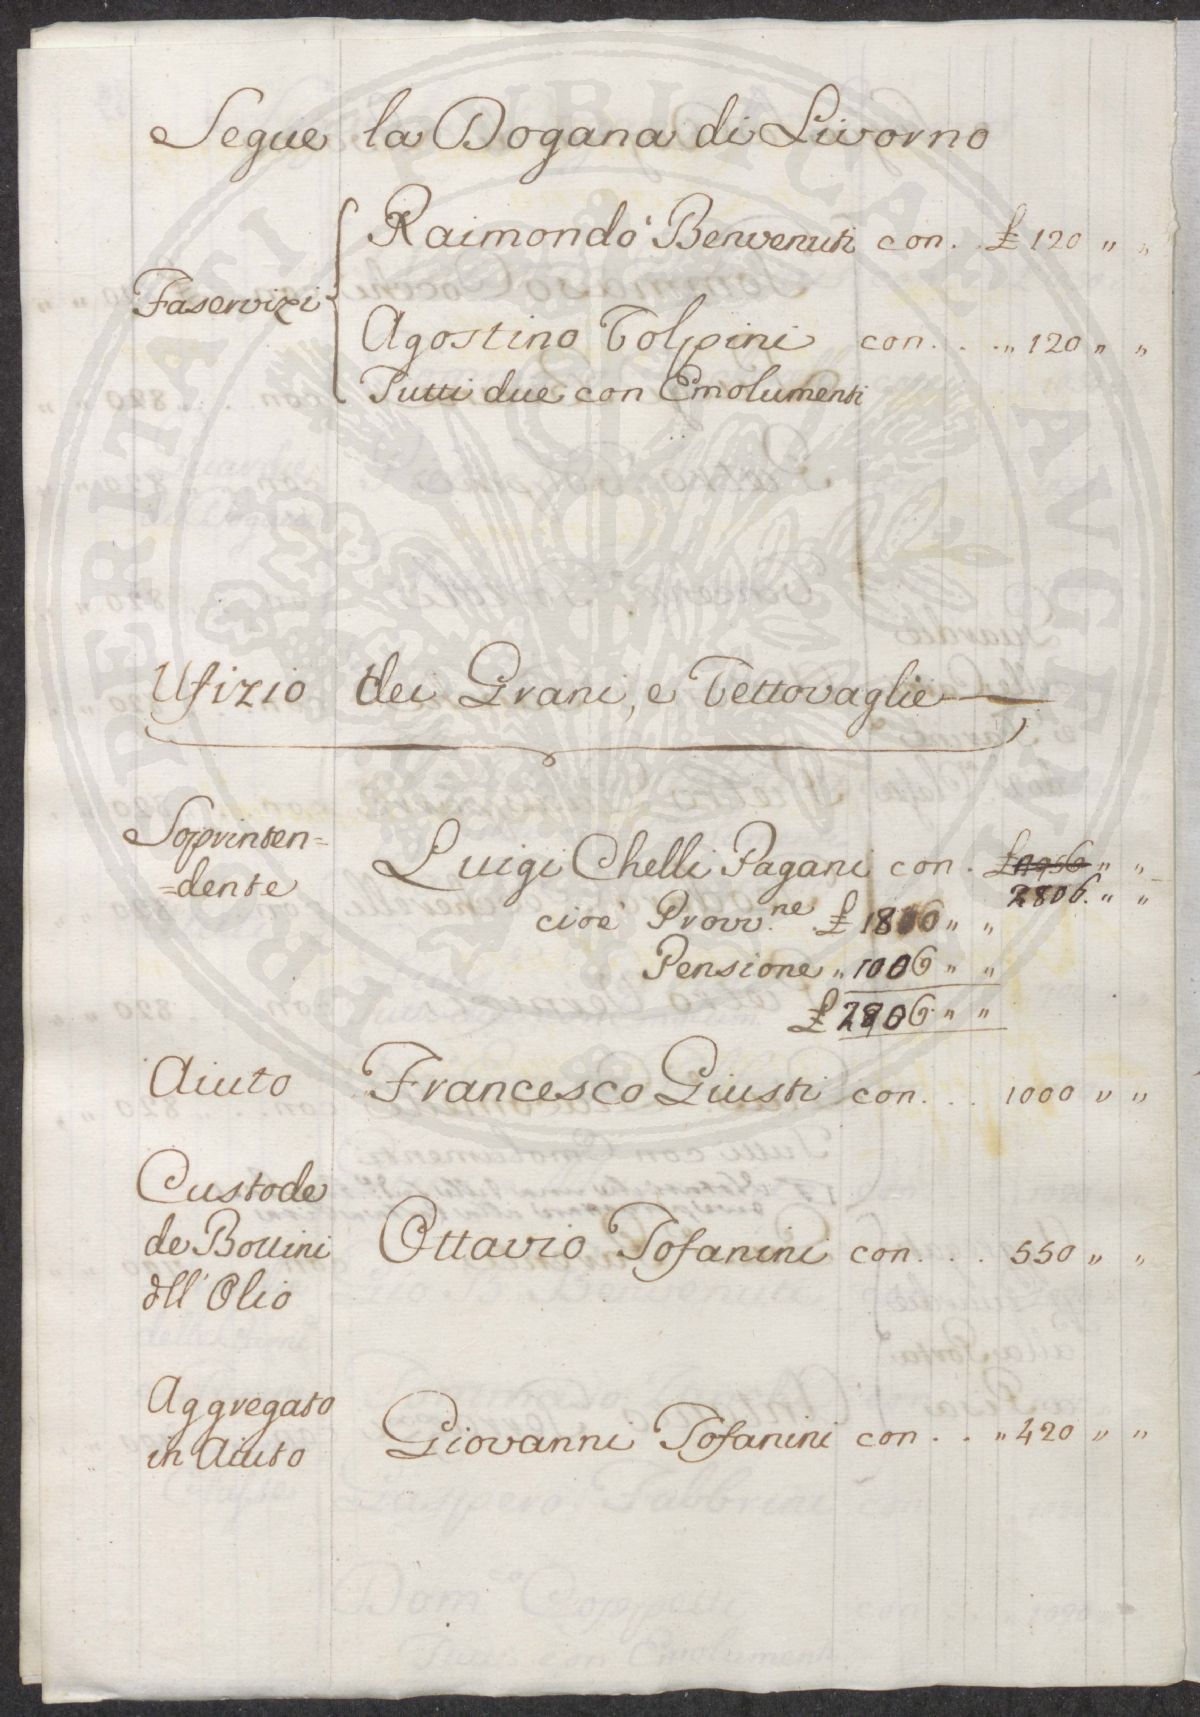 Segue la Dogana di Livorno
Faservizi
Raimondo Benvenuti con . . £ 120 " "
Agostino Volpini con . . . " 120 " "
Tutti due con Emolumenti
Ufizio dei Grani, e Vettovaglie
Soprinten=
=dente
Luigi Chelli Pagani con . £
2806. " "
cioè Provv.ne . £ 1800 " "
Pensione " 1006 " "
£ 2806 " "
Aiuto Francesco Giusti con . . . 1000 " "
Custode
de Bottini
dll' Olio
Ottavio Tofanini con . . . 550 " "
Aggregato
in Aiuto
Giovanni Tofanini con . . " 420 " "